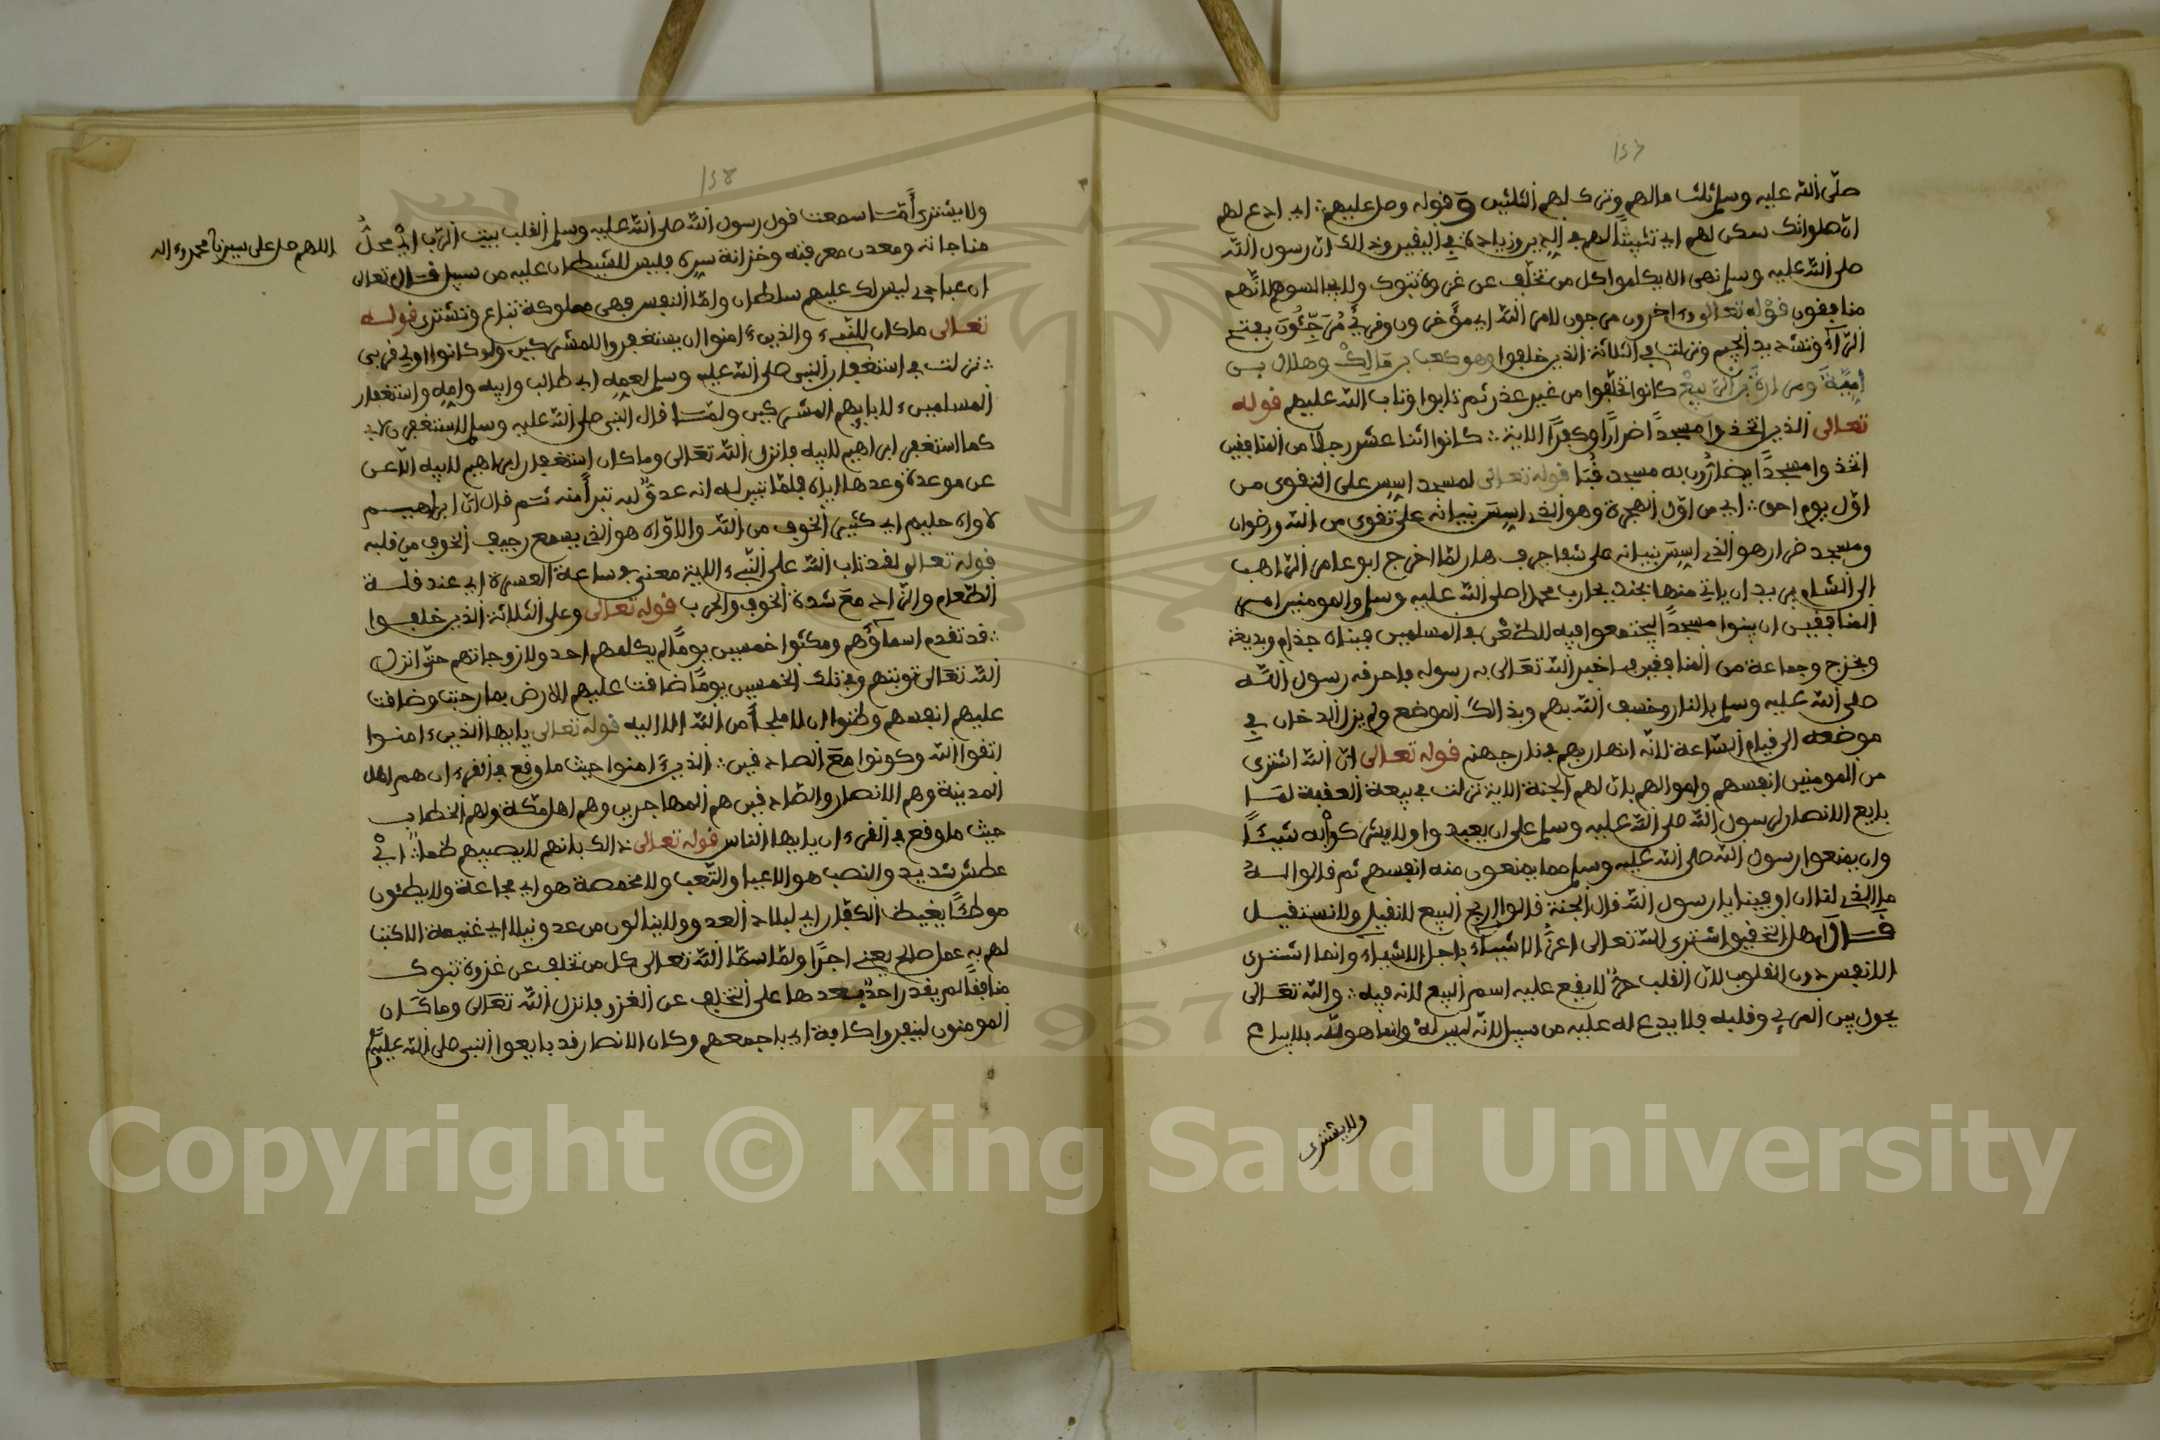 صلى الله عليه وسلم ثلث مالهم وترك لهم الثلثين وقوله وصل عليهم أي ادع لهم
ان صلواتك سكن لهم أي تثبيتا لهم في الدين وزيادة في اليقين وذالك ان رسول الله
صلى الله عليه وسلم نهى الا يكلموا كل من تخلف عن غزوة تبوك ولا يجالسوهم لانهم
منافقون قوله تعالى وءاخرون مرجون لامر الله أي مؤخرون وقرئ مرجئون بفتح
الراء وتشديد الجيم ونزلت في الثلاثة الذين خلفوا وهو كعب بن مالك وهلال بن
امية ومرارة بن الربيع كانوا تخلفوا من غير عذر ثم تابوا وتاب الله عليهم قوله
تعالى الذين اتخذوا مسجدا ضرارا وكفرا الاية كانوا اثنا عشر رجلا من المنافقين
اتخذوا مسجدا يضارون به مسجد قبا قوله تعالى لمسجد اسس على التقوى من
اول يوم احق أي من اول الهجرة وهو الذي اسس بنيانه على تقوى من الله ورضوان
ومسجد ضرار هو الذي اسس بنيانه على شفا جرف هار لما اخرج ابو عامر الراهب
الى الشام يريد ان ياتي منها بجند يحارب محمدا صلى الله عليه وسلم والمومنين امر
المنافقين ان يبنوا مسجدا ليجتمعوا فيه للطعن في المسلمين فبناه جذام ووديعة
وبخزج وجماعة من المنافقين فاخبر الله تعالى به رسوله فاحرقه رسول الله
صلى الله عليه وسلم بالنار وخسف الله بهم وبذالك الموضع ولم يزل الدخان في
موضعه الى قيام الساعة لانه انهار بهم في نار جهنم قوله تعالى ان الله اشترى
من المومنين انفسهم واموالهم بان لهم الجنة الاية نزلت في بيعة العقبة لما
بايع الانصار لرسول الله صلى الله عليه وسلم على ان يعبدوا ولا يشركوا به شيئا
وان يمنعوا رسول الله صلى الله عليه وسلم مما يمنعون منه انفسهم ثم قالوا له
ما الذي لنا ان اوفينا يا رسول الله قال الجنة قالوا ربح البيع لا نقيل ولا نستقيل
قال اهل التحقيق اشترى الله تعالى اعز الاشياء باجل الاشياء وانما اشترى
الانفس دون القلوب لان القلب حر لا يقع عليه اسم البيع لانه فيه والله تعالى
يحول بين المرء وقلبه فلا يدع له عليه من سبيل لانه ليس له وانما هو لله بلا يباع
ولا يشترى
ولا يشترى أما سمعت قول رسول الله صلى الله عليه وسلم القلب بيت الرب أي محل
مناجاته ومعدن معرفته وخزانة سره فليس للشيطان عليه من سبيل قال تعالى
ان عبادي ليس لك عليهم سلطان واما النفس فهي مملوكة تباع وتشترى قوله
تعالى ما كان للنبيء والذين ءامنوا ان يستغفروا للمشركين ولو كانوا اولي قربى
نزلت في استغفار النبي صلى الله عليه وسلم لعمه ابي طالب وابيه وامه واستغفار
المسلمين لابايهم المشركين ولما قال النبي صلى الله عليه وسلم لاستغفرن لابي
كما استغفر ابراهيم لابيه فانزل الله تعالى وما كان استغفار ابراهيم لابيه الا عن
عن موعدة وعدها اياه فلما تبين له انه عدو لله تبرأ منه ثم قال ان ابراهيم
لاواه حليم أي كثير الخوف من الله والاواه هو الذي يسمع رجيف الخوف من قلبه
قوله تعالى لقد تاب الله على النبيء الاية معنى في ساعة العسرة أي عند قلة
الطعام والزاد مع شدة الخوف والحرب قوله تعالى وعلى الثلاثة الذين خلفوا
قد تقدم اسماؤهم ومكثوا خمسين يوما لم يكلمهم احد ولا زوجاتهم حتى انزل
الله تعالى توبتهم وفي تلك الخمسين يوما ضاقت عليهم الارض بما رحبت وضاقت
عليهم انفسهم وظنوا ان لا ملجأ من الله الا اليه قوله تعالى يايها الذين ءامنوا
اتقوا الله وكونوا مع الصادقين الذين ءامنوا حيث ما وقع في القرءان هم اهل
المدينة وهم الانصار والصادقين هم المهاجرين وهم اهل مكة ولهم الخطاب
حيث ما وقع في القرءان يايها الناس قوله تعالى ذالك بانهم لا يصيبهم ظمأ أي
عطش شديد والنصب هو الاعيا والتعب ولا مخمصة هو أي مجاعة ولا يطئون
موطئا يغيظ الكفار أي لبلاد العدو ولا ينالون من عدو نيلا أي غنيمة الا كتب
لهم به عمل صالح يعني اجرا ولما سما الله تعالى كل من تخلف عن غزوة تبوك
منافقا لم يقدر احد بعدها على التخلف عن الغزو فانزل الله تعالى وما كان
المومنون لينفروا كافة أي باجمعهم وكان الانصار قد بايعوا النبي صلى الله عليه وسلم
اللهم صل على سيدنا محمد وءاله
Copyright © King Saud University
1957